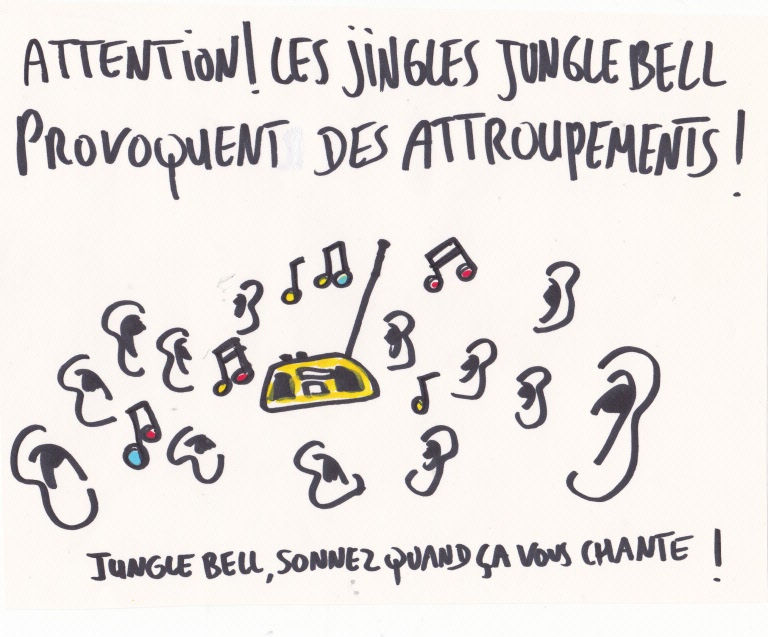 ATTENTION! LES JINGLES JUNGLE BELL
PROVOQUENT DES ATTROUPEMENTS !
JUNGLE BELL, SONNEZ QUAND ÇA VOUS CHANTE !